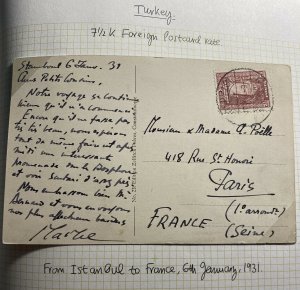 Turkey
7½ K Foreign Postcard rate
Stamboul 6 Janv. 31
Aux Petits Cousins,
Notre voyage se continue
bien qu'il a commencé
Encore qu'il ne fasse pas
très beau, nous espérons
tout de même faire cet après
midi une intéressante
promenade sur le Bosphore
et voir Scutari d'assez près
Nous embrassons bien M.
et vous envoyons
nos plus affectueux baisers
Monsieur & Madame A.
418 Rue St Honoré
Paris
(1e arrondt)
FRANCE
(Seine)
From Istanbul to France, 6th January, 1931.